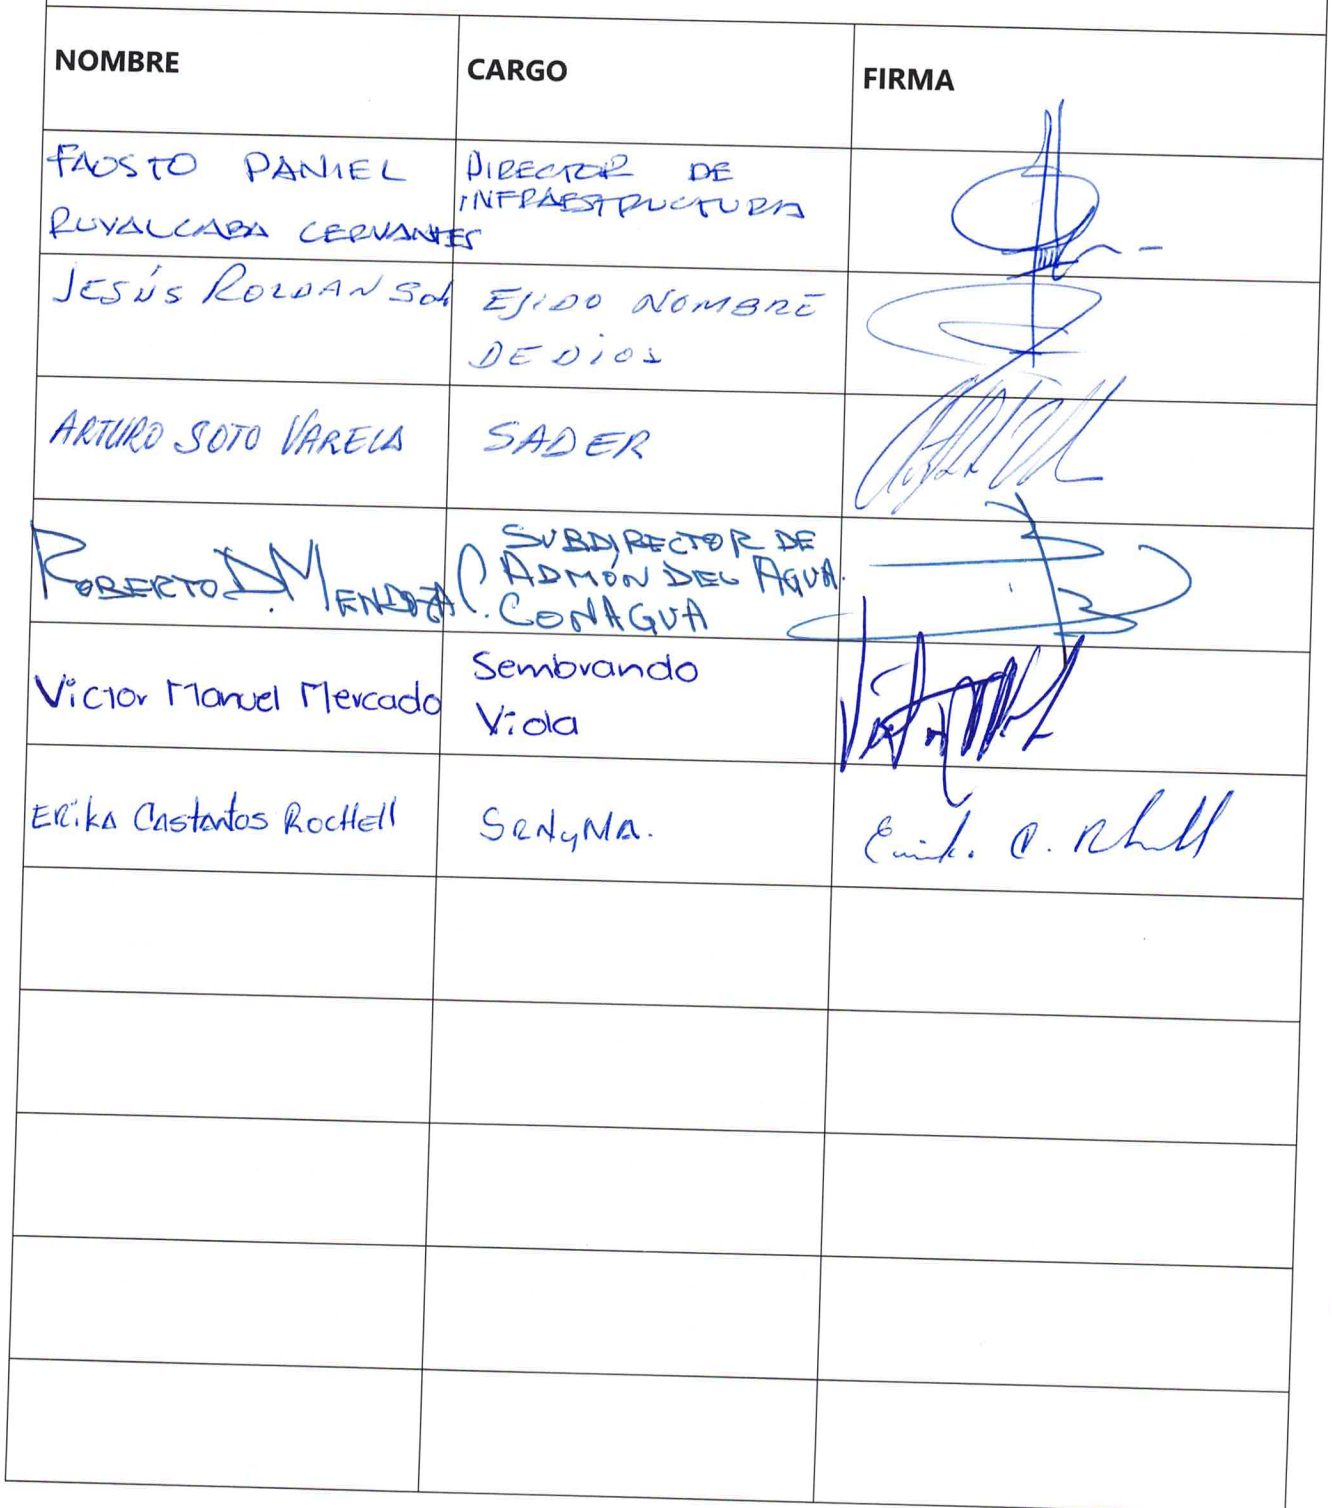 NOMBRE CARGO FIRMA
FAUSTO DANIEL
RUVALCABA CERVANTES
DIRECTOR DE
INFRAESTRUCTURA
JESÚS ROLDAN Soh
EJIDO NOMBRE
DE DIOS
ARTURO SOTO VARELA
SADER
ROBERTO D. MENDOZA C.
SUBDIRECTOR DE
ADMÓN DEL AGUA.
CONAGUA
Victor Manuel Mercado
Sembrando
Vida
ERIKA Castantos Rochell
SRNyMA.